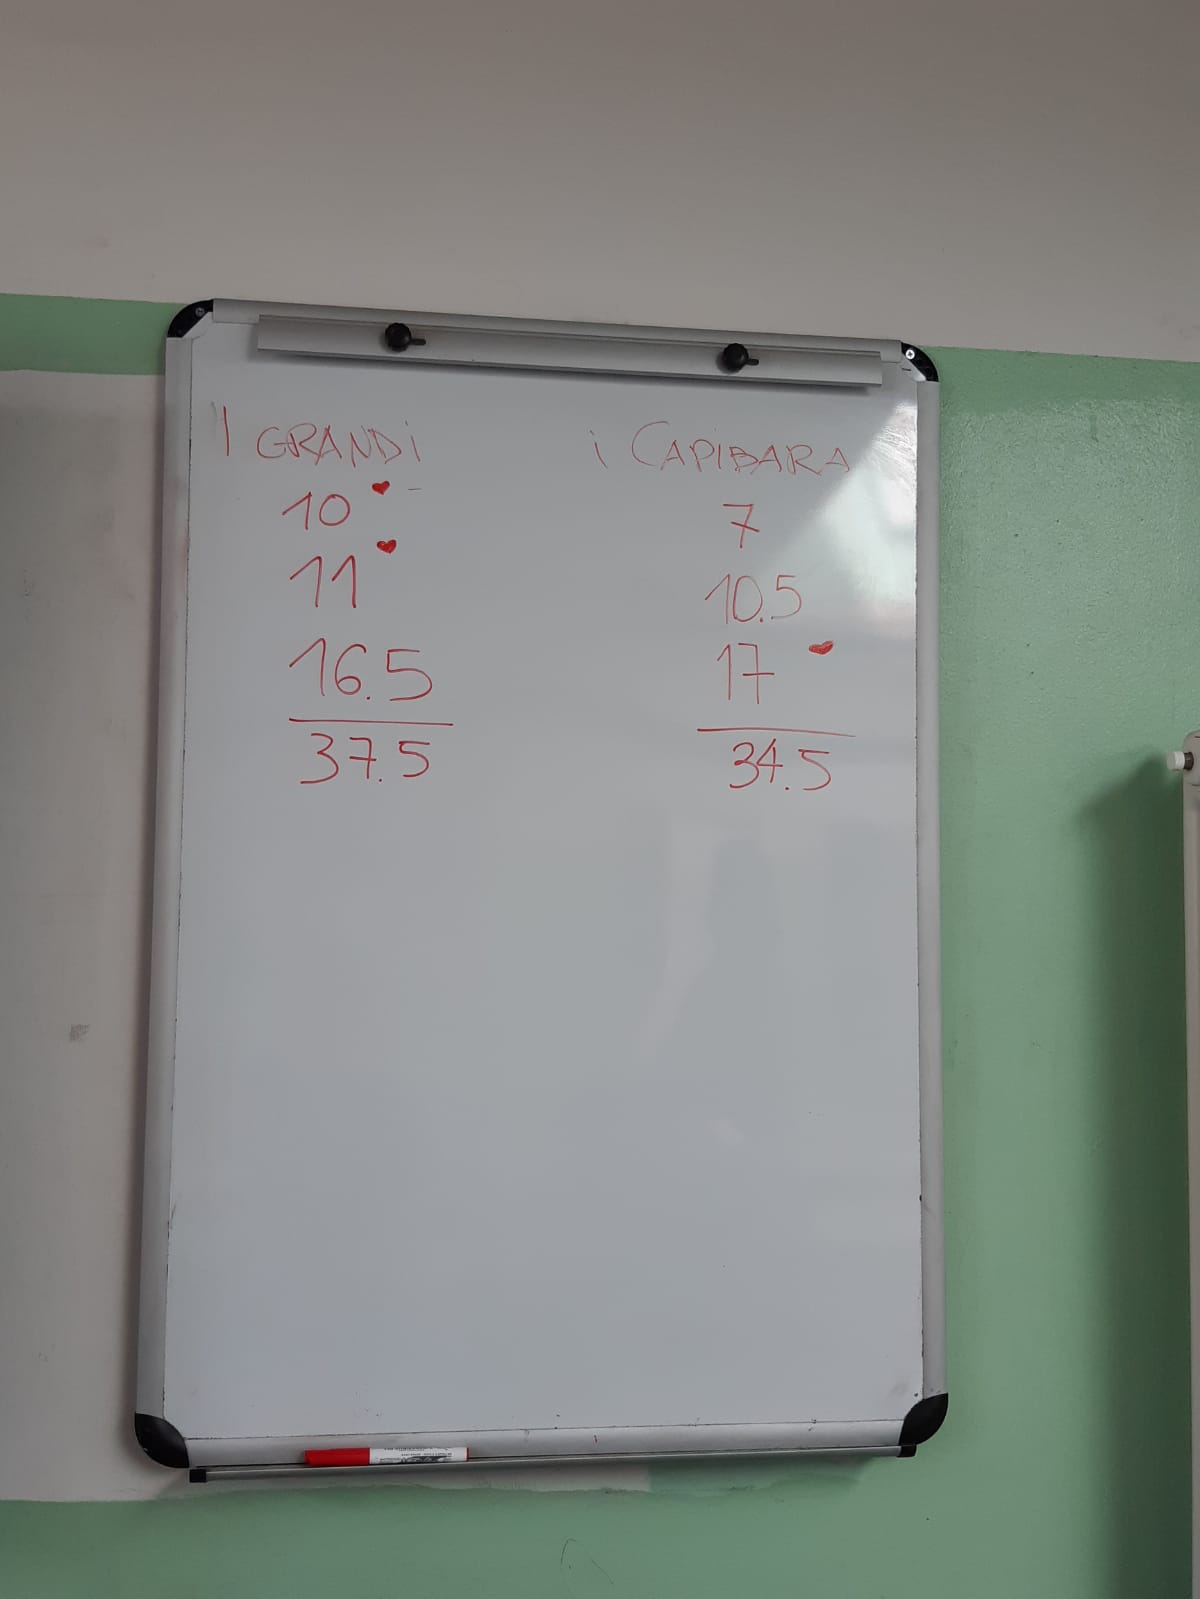 I GRANDi
10
11
16.5
37.5
i CAPiBARA
7
10.5
17
34.5